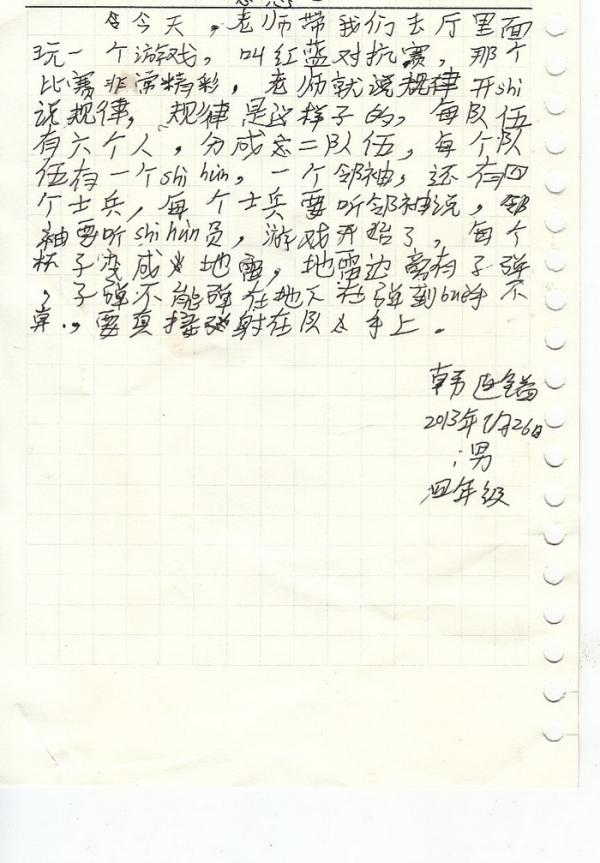 今天，老师带我们去厅里面
玩一个游戏，叫红蓝对抗赛，那个
比赛非常精彩，老师就说规律开shi
说规律，规律是这样子的，每队伍
有六个人，分成二队伍，每个队
伍有一个shi hun，一个邻袖，还有四
个士兵，每个士兵要听邻袖说，邻
袖要听shi hun员，游戏开始了，每个
杯子变成地雷，地雷边旁有子弹
，子弹不能弹在地下在弹到手不
算，要真接弹射在队手上。
韩
2013年7月26日
男
四年级